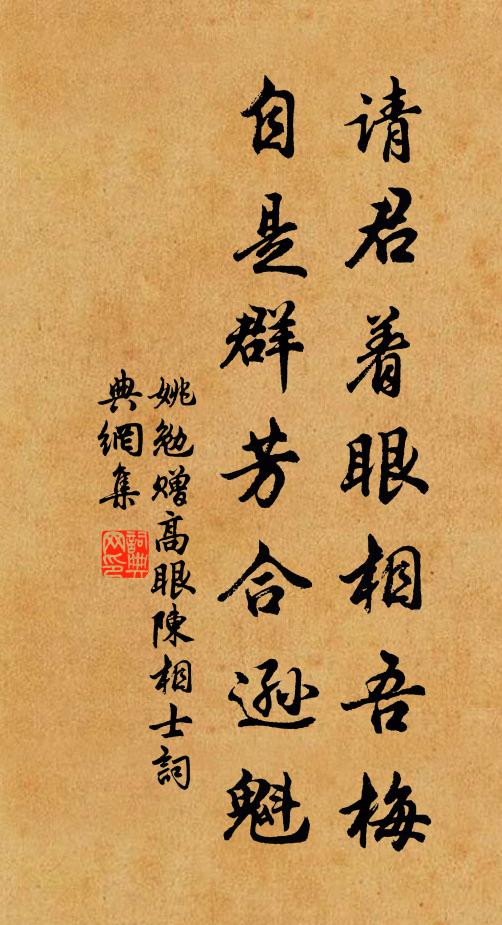 请君着眼相吾梅
自是群芳合逊魁
姚勉赠高眼陳相士詞
典網集
詞典
网印